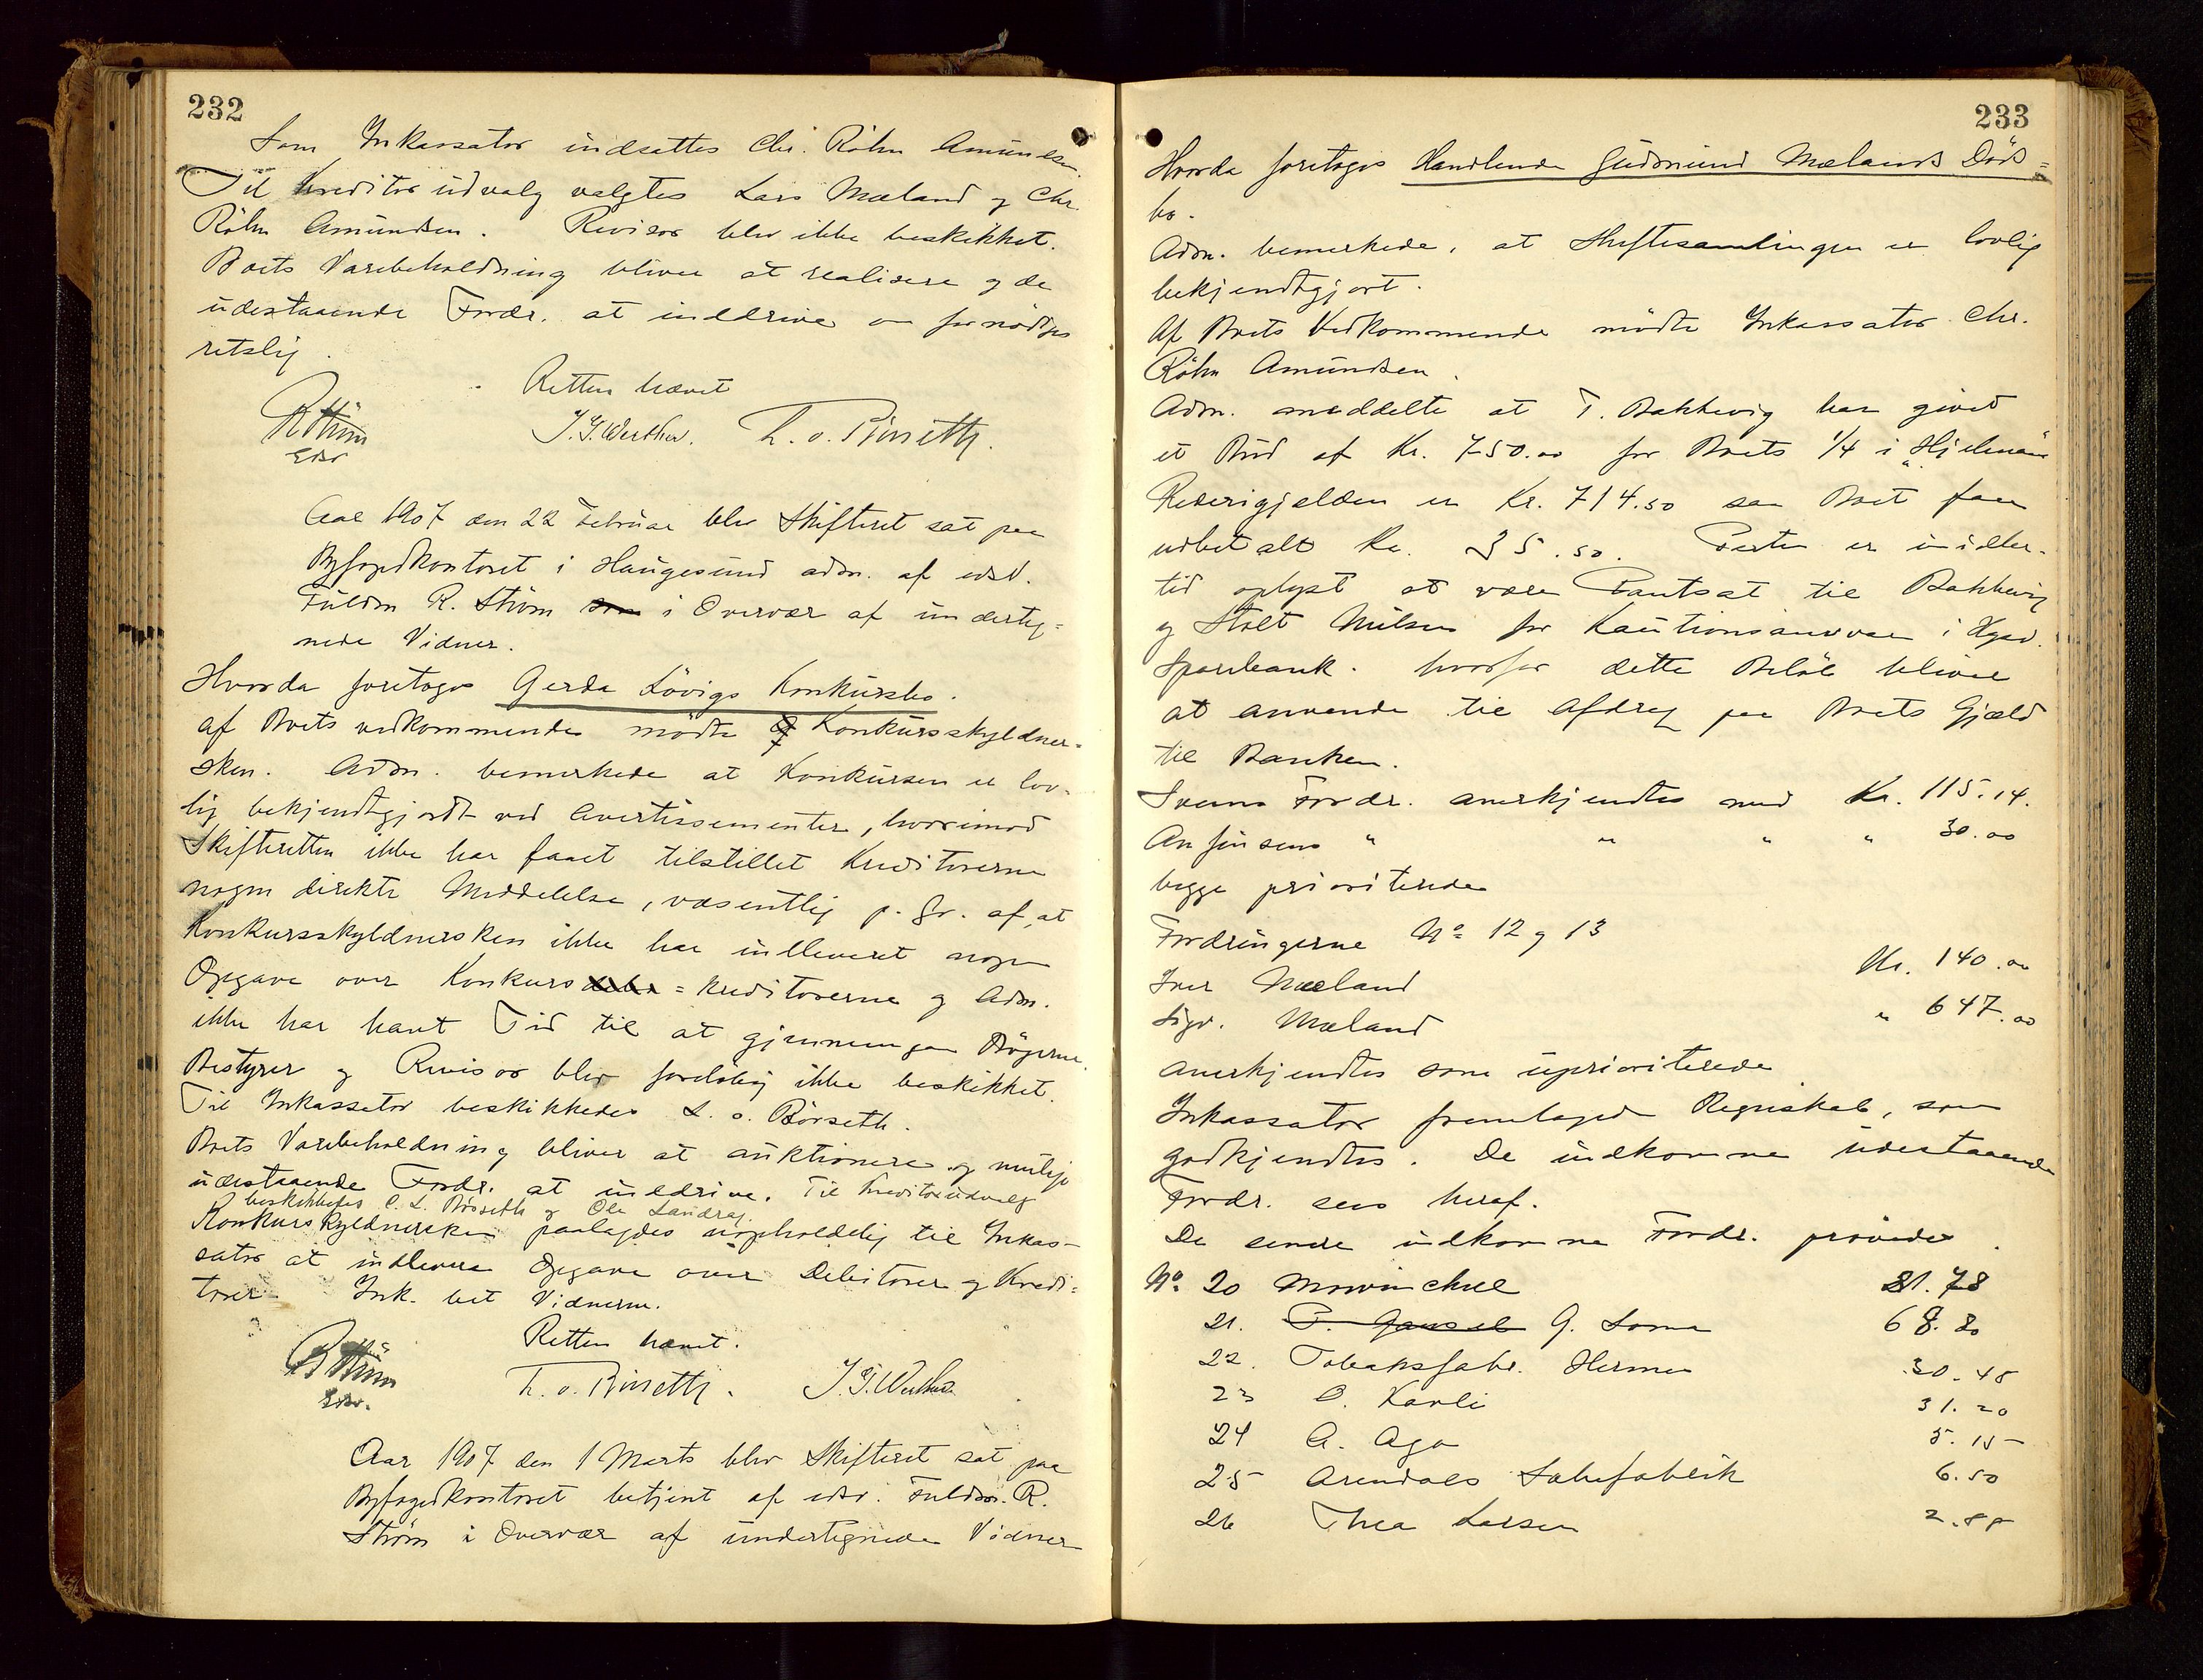 232
Som Inkassator indsattes Chr. Röhn Amundsen.
Til Kreditorudvalg valgtes Lars Mæland og Chr.
Röhn Amundsen. Revisor blev ikke beskikket.
Boets Varebeholdning bliver at realisere og de
udestaaende Fordr. at inddrive om fornödiges
retslig.
Retten hævet
R Ström
Edsv
J. G. Werther. L. O. Börseth.
Aar 1907 den 22 Februar blev Skifteret sat paa
Byfogedkontoret i Haugesund adm. af edsv.
Fuldm R. Ström som i Overvær af underteg=
nede Vidner.
Hvorda foretoges Gerda Lövigs Konkursbo.
af Boets vedkommende mödte Konkursskyldner-
sken. Adm. bemerkede at Konkursen er lov-
lig bekjendtgjordt ved Avertissementer, hvorimod
Skifteretten ikke har faaet tilstillet Kreditorerne
nogen direkte Meddelelse, væsentlig p. Gr. af, at
Konkursskyldnersken ikke har indleveret nogen
Opgave over Konkurs = kreditorerne og Adm.
ikke har havt Tid til at gjennemgaa Bögerne.
Bestyrer og Revisor blev forelöbig ikke beskikket.
Til Inkassator beskikkedes L. O. Börseth.
Boets Varebeholdning bliver at auktionere og mulige
udestaaende Fordr. at inddrive. Til Kreditorudvalg
beskikkedes O. L. Börseth og Ole Landrag.
Konkursskyldnersken paalagdes uopholdelig til Inkas-
sator at indlevere Opgave over Debitorer og Kredi=
torer. Ink. bet Vidnerne.
Retten hævet.
R Ström
Edsv.
L. O. Börseth. J. G. Werther
Aar 1907 den 1 Marts blev Skifteret sat paa
Byfogedkontoret betjent af edsv. Fuldm. R.
Ström i Overvær af undertegnede Vidner
233
Hvorda foretoges Handlende Gudmund Mælands Döds=
bo.
Adm. bemerkede, at Skiftesamlingen er lovlig
bekjendtgjort.
Af Boets Vedkommende mödte Inkassator Chr.
Röhn Amundsen.
Adm. meddelte at T. Bakkevig har givet
et Bud af Kr. 750.00 for Boets 1/4 i "Hjelmen"
Rederigjælden er Kr. 714.50 saa Boet faar
udbetalt Kr. 35.50. Parten er imidler-
tid oplyst at være Pantsat til Bakkevig
og Stolt Nielsen for Kautionsansvar i Hgsd.
Sparebank. hvorfor dette Beløb bliver
at anvende til Afdrag paa Boets Gjæld
til Banken.
Svens Fordr. anerkjendtes med Kr. 115.14.
Anfinsens " " " " 30.00
begge prioriterede
Fordringerne No 12 og 13
Iver Mæland Kr. 140.00
Sigv. Mæland " 647.00
anerkjendtes som uprioriterede
Inkassator fremlagde Regnskab, som
godkjendtes. De indkomne udestaaende
Fordr. sees heraf.
De senere indkomne Fordr. prövedes.
No 20 Mowinchel 21.78
21. P. Gausel G. Soma 68.80
22. Tobaksfabr. Hermes 30.45
23 O. Kavli 31.20
24 A. Aga 5.15
25 Arendals Sæbefabrik 6.50
26 Thea Larsen 2.88